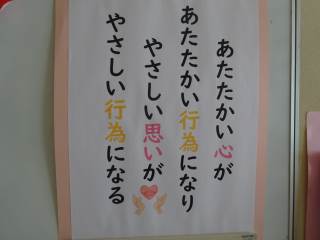 あたたかい心が
あたたかい行為になり
やさしい思いが
やさしい行為になる